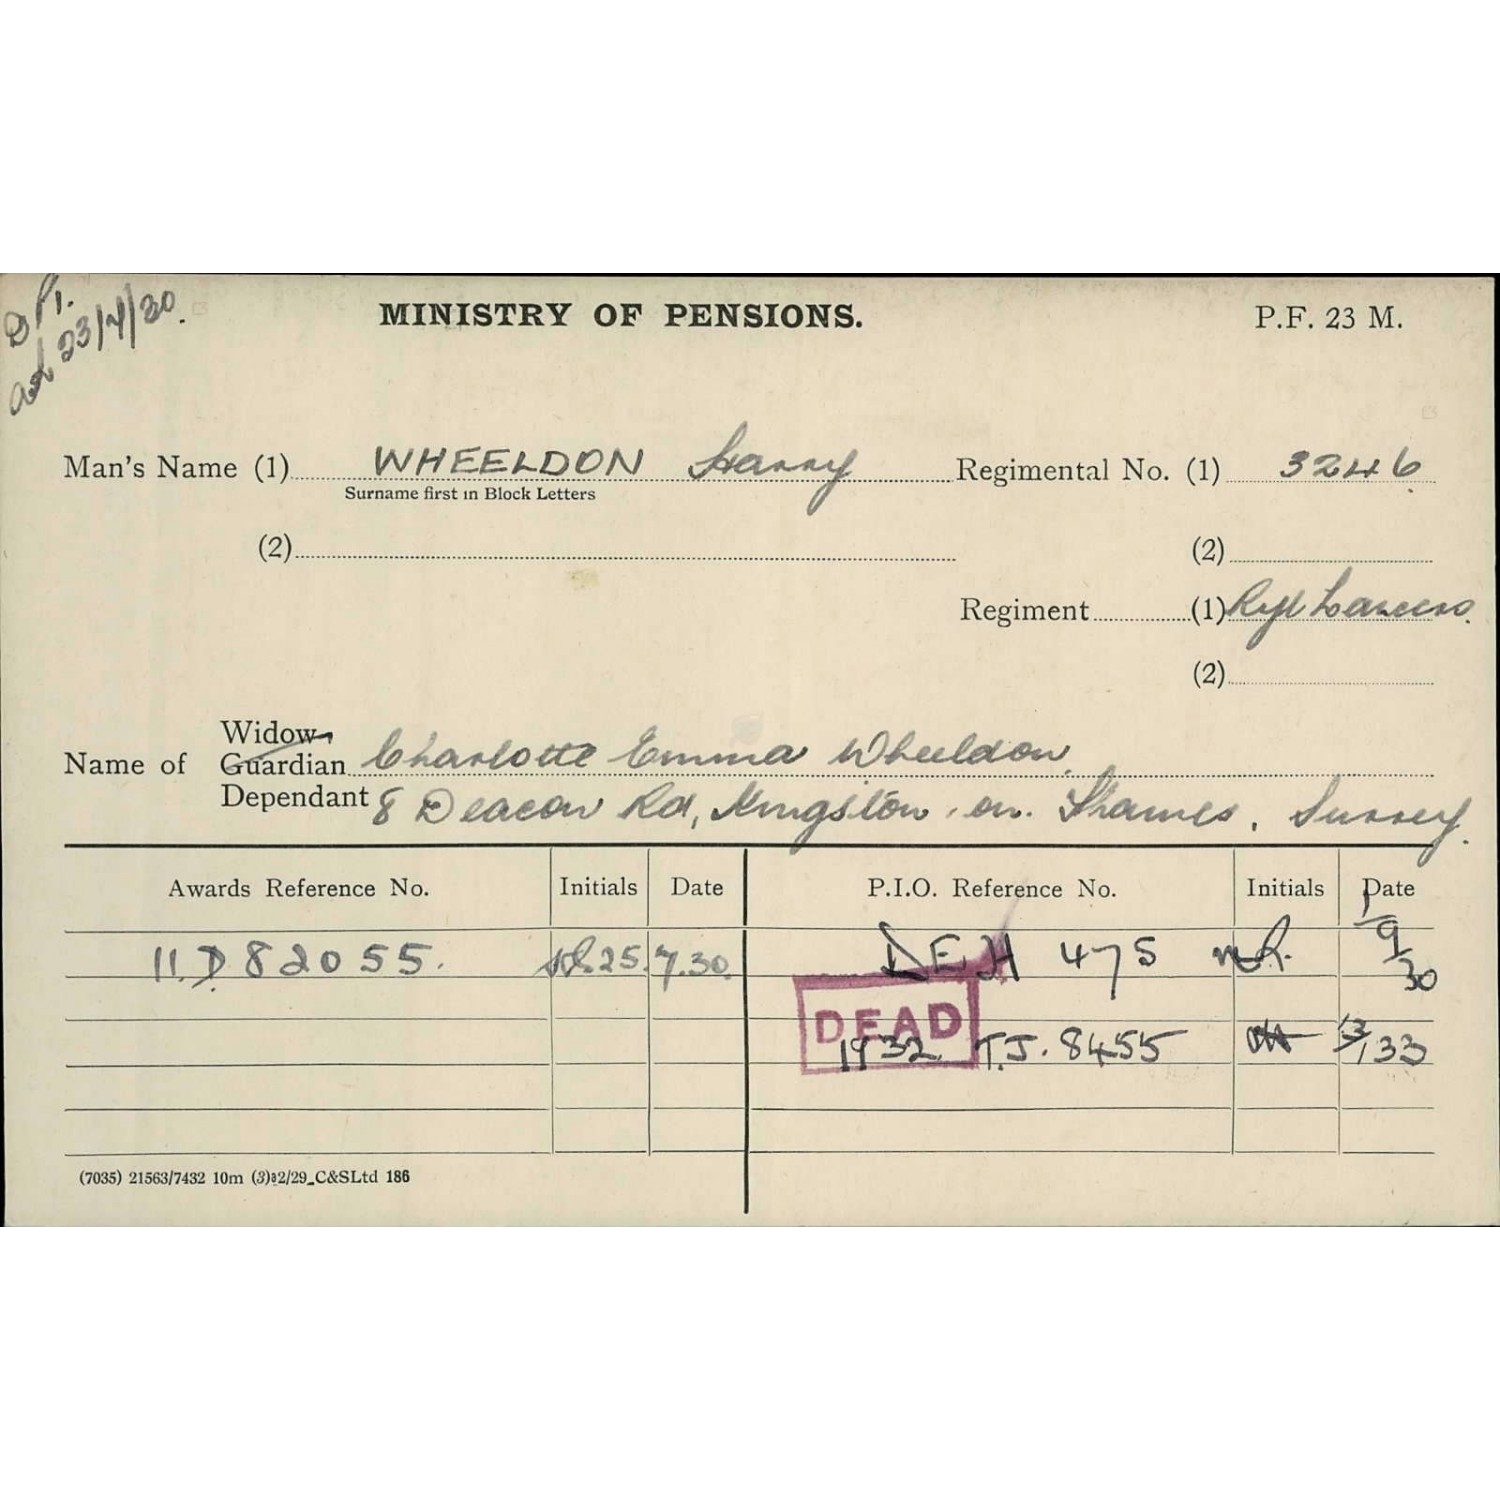 D P1.
23/7/30.
MINISTRY OF PENSIONS.
P.F. 23 M.
Man's Name (1) WHEELDON Harry Regimental No. (1) 3246
Surname first in Block Letters
(2) (2)
Regiment (1) Ryl Lancers.
(2)
Widow
Name of Guardian Charlotte Emma Wheeldon.
Dependant 8 Deacon Rd, Kingston. on. Thames, Surrey.
Awards Reference No. Initials Date P.I.O. Reference No. Initials Date
11.D 82055. 25.7.30. D.E.H 475 1/9/30
DEAD
1932 T.J. 8455 33
(7035) 21563/7432 10m (3) 2/29 C&SLtd 186